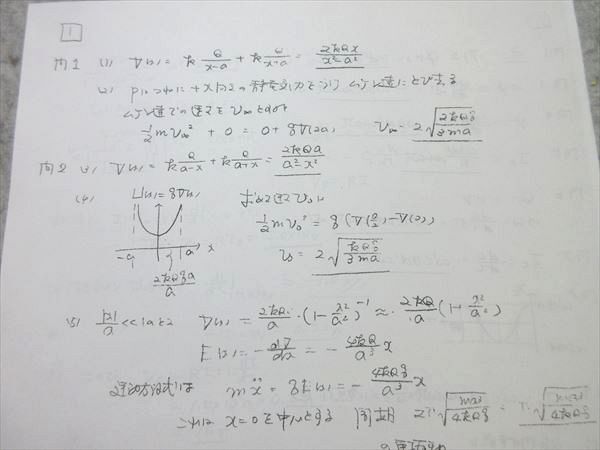 1
問1 (1) V(x) = k Q/(x-a) + k Q/(x+a) = 2kQx/(x²-a²)
(2) Pは つねに +x向きの静電気力をうけ 無限遠にとび去る
無限遠での速さを v∞ とおけ
1/2 m v∞² + 0 = 0 + qV(2a), v∞ = 2√(2kQq/3ma)
問2 (3) V(x) = k Q/(a-x) + k Q/(a+x) = 2kQa/(a²-x²)
(4) U(x) = qV(x) 求める速さ v₀は
1/2 m v₀² = q (V(a/2) - V(0)),
-a a/2 a x
v₀ = 2√(kQq/3ma)
2kQq/a
(5) |x|/a << 1のとき V(x) = 2kQ/a · (1 - x²/a²)⁻¹ ≈ 2kQ/a (1+ x²/a²)
E(x) = - dV/dx = - 4kQ/a³ x
運動方程式は mẍ = qE(x) = - 4kQq/a³ x
これは x=0を中心とする 周期 2π√(ma³/4kQq) = π√(ma³/kQq)
の単振動